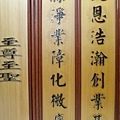 恩浩瀚創業
淨業障化微
至尊至聖